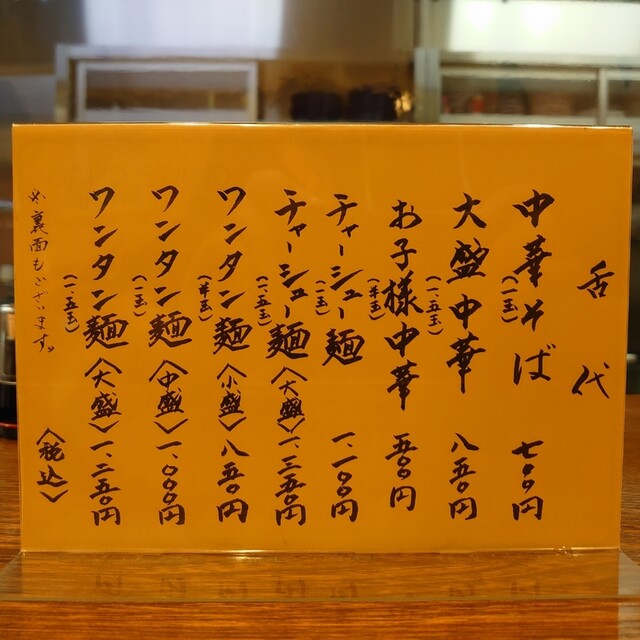 舌代
中華そば(一玉)七〇〇円
大盛中華(一、五玉)八五〇円
お子様中華(半玉)五〇〇円
チャーシュー麺(一玉)一、一〇〇円
チャーシュー麺(一、五玉)〈大盛〉一、三五〇円
ワンタン麺(半玉)〈小盛〉八五〇円
ワンタン麺(一玉)〈中盛〉一、〇〇〇円
ワンタン麺(一、五玉)〈大盛〉一、二五〇円
※裏面もございます。
〈税込〉